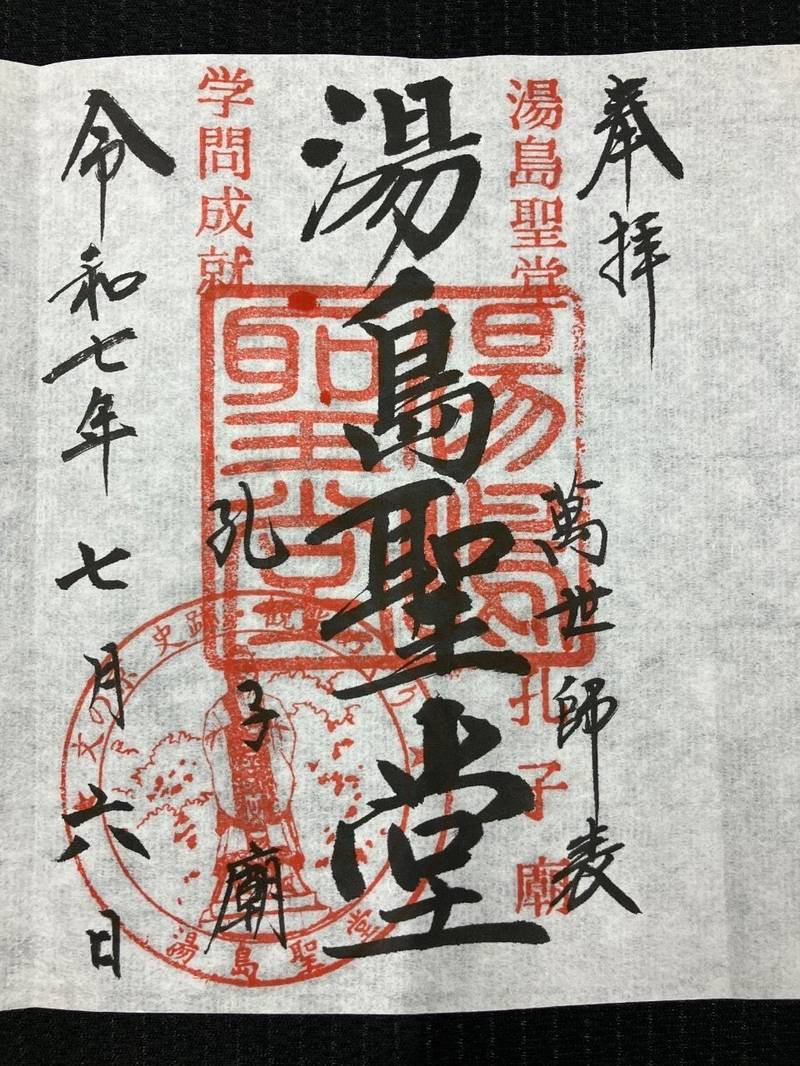 奉拝
萬世師表
湯島聖堂
孔子廟
湯島聖堂
学問成就
湯島聖堂
孔子廟
令和七年七月六日
湯島聖堂